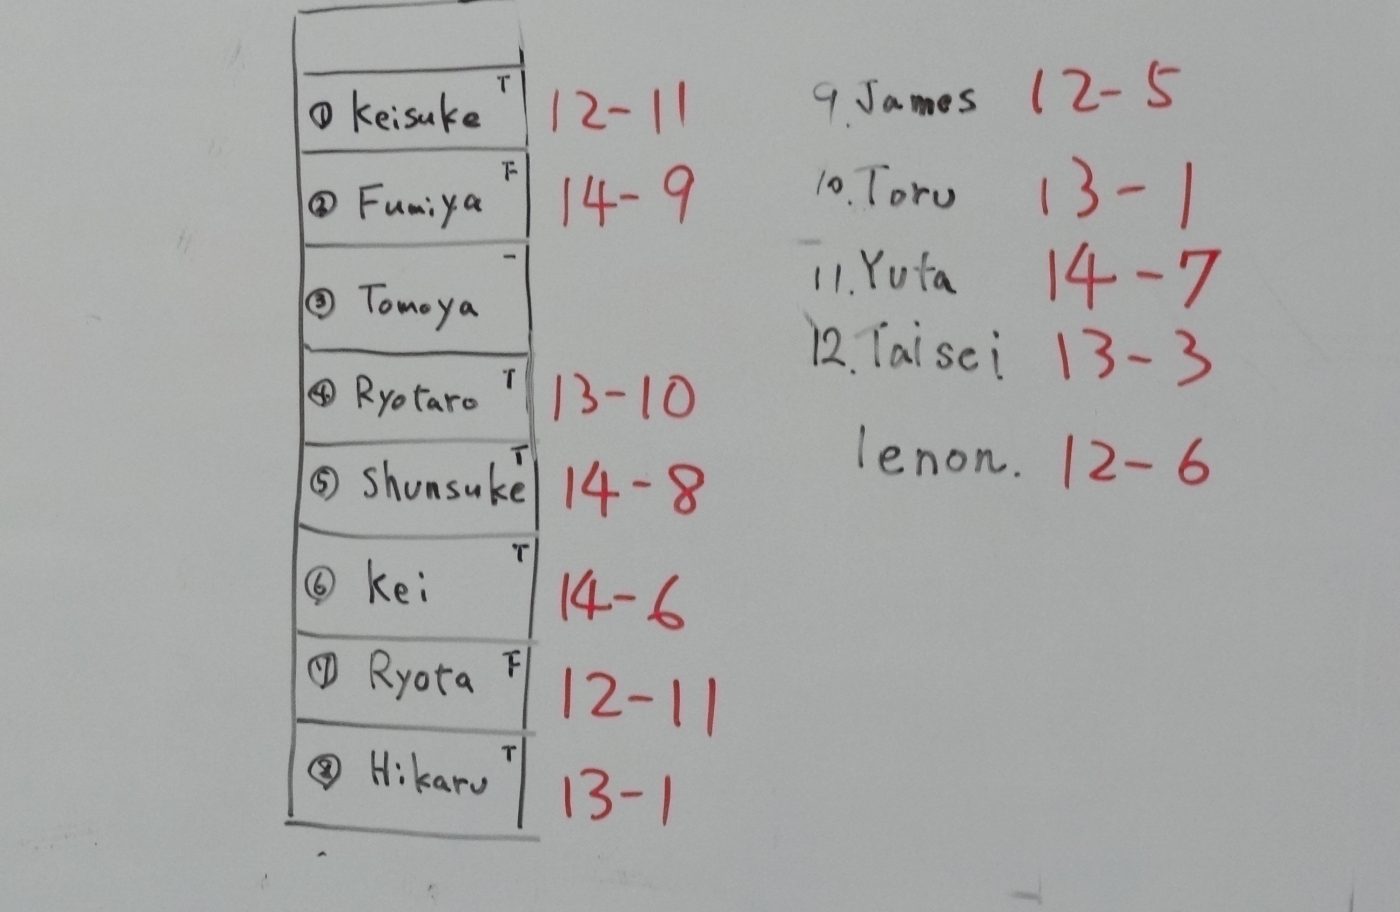 ① Keisuke T 12-11
② Fumiya F 14-9
③ Tomoya -
④ Ryotaro T 13-10
⑤ Shunsuke T 14-8
⑥ Kei T 14-6
⑦ Ryota F 12-11
⑧ Hikaru T 13-1
9. James 12-5
10. Toru 13-1
11. Yuta 14-7
12. Taisei 13-3
lenon. 12-6